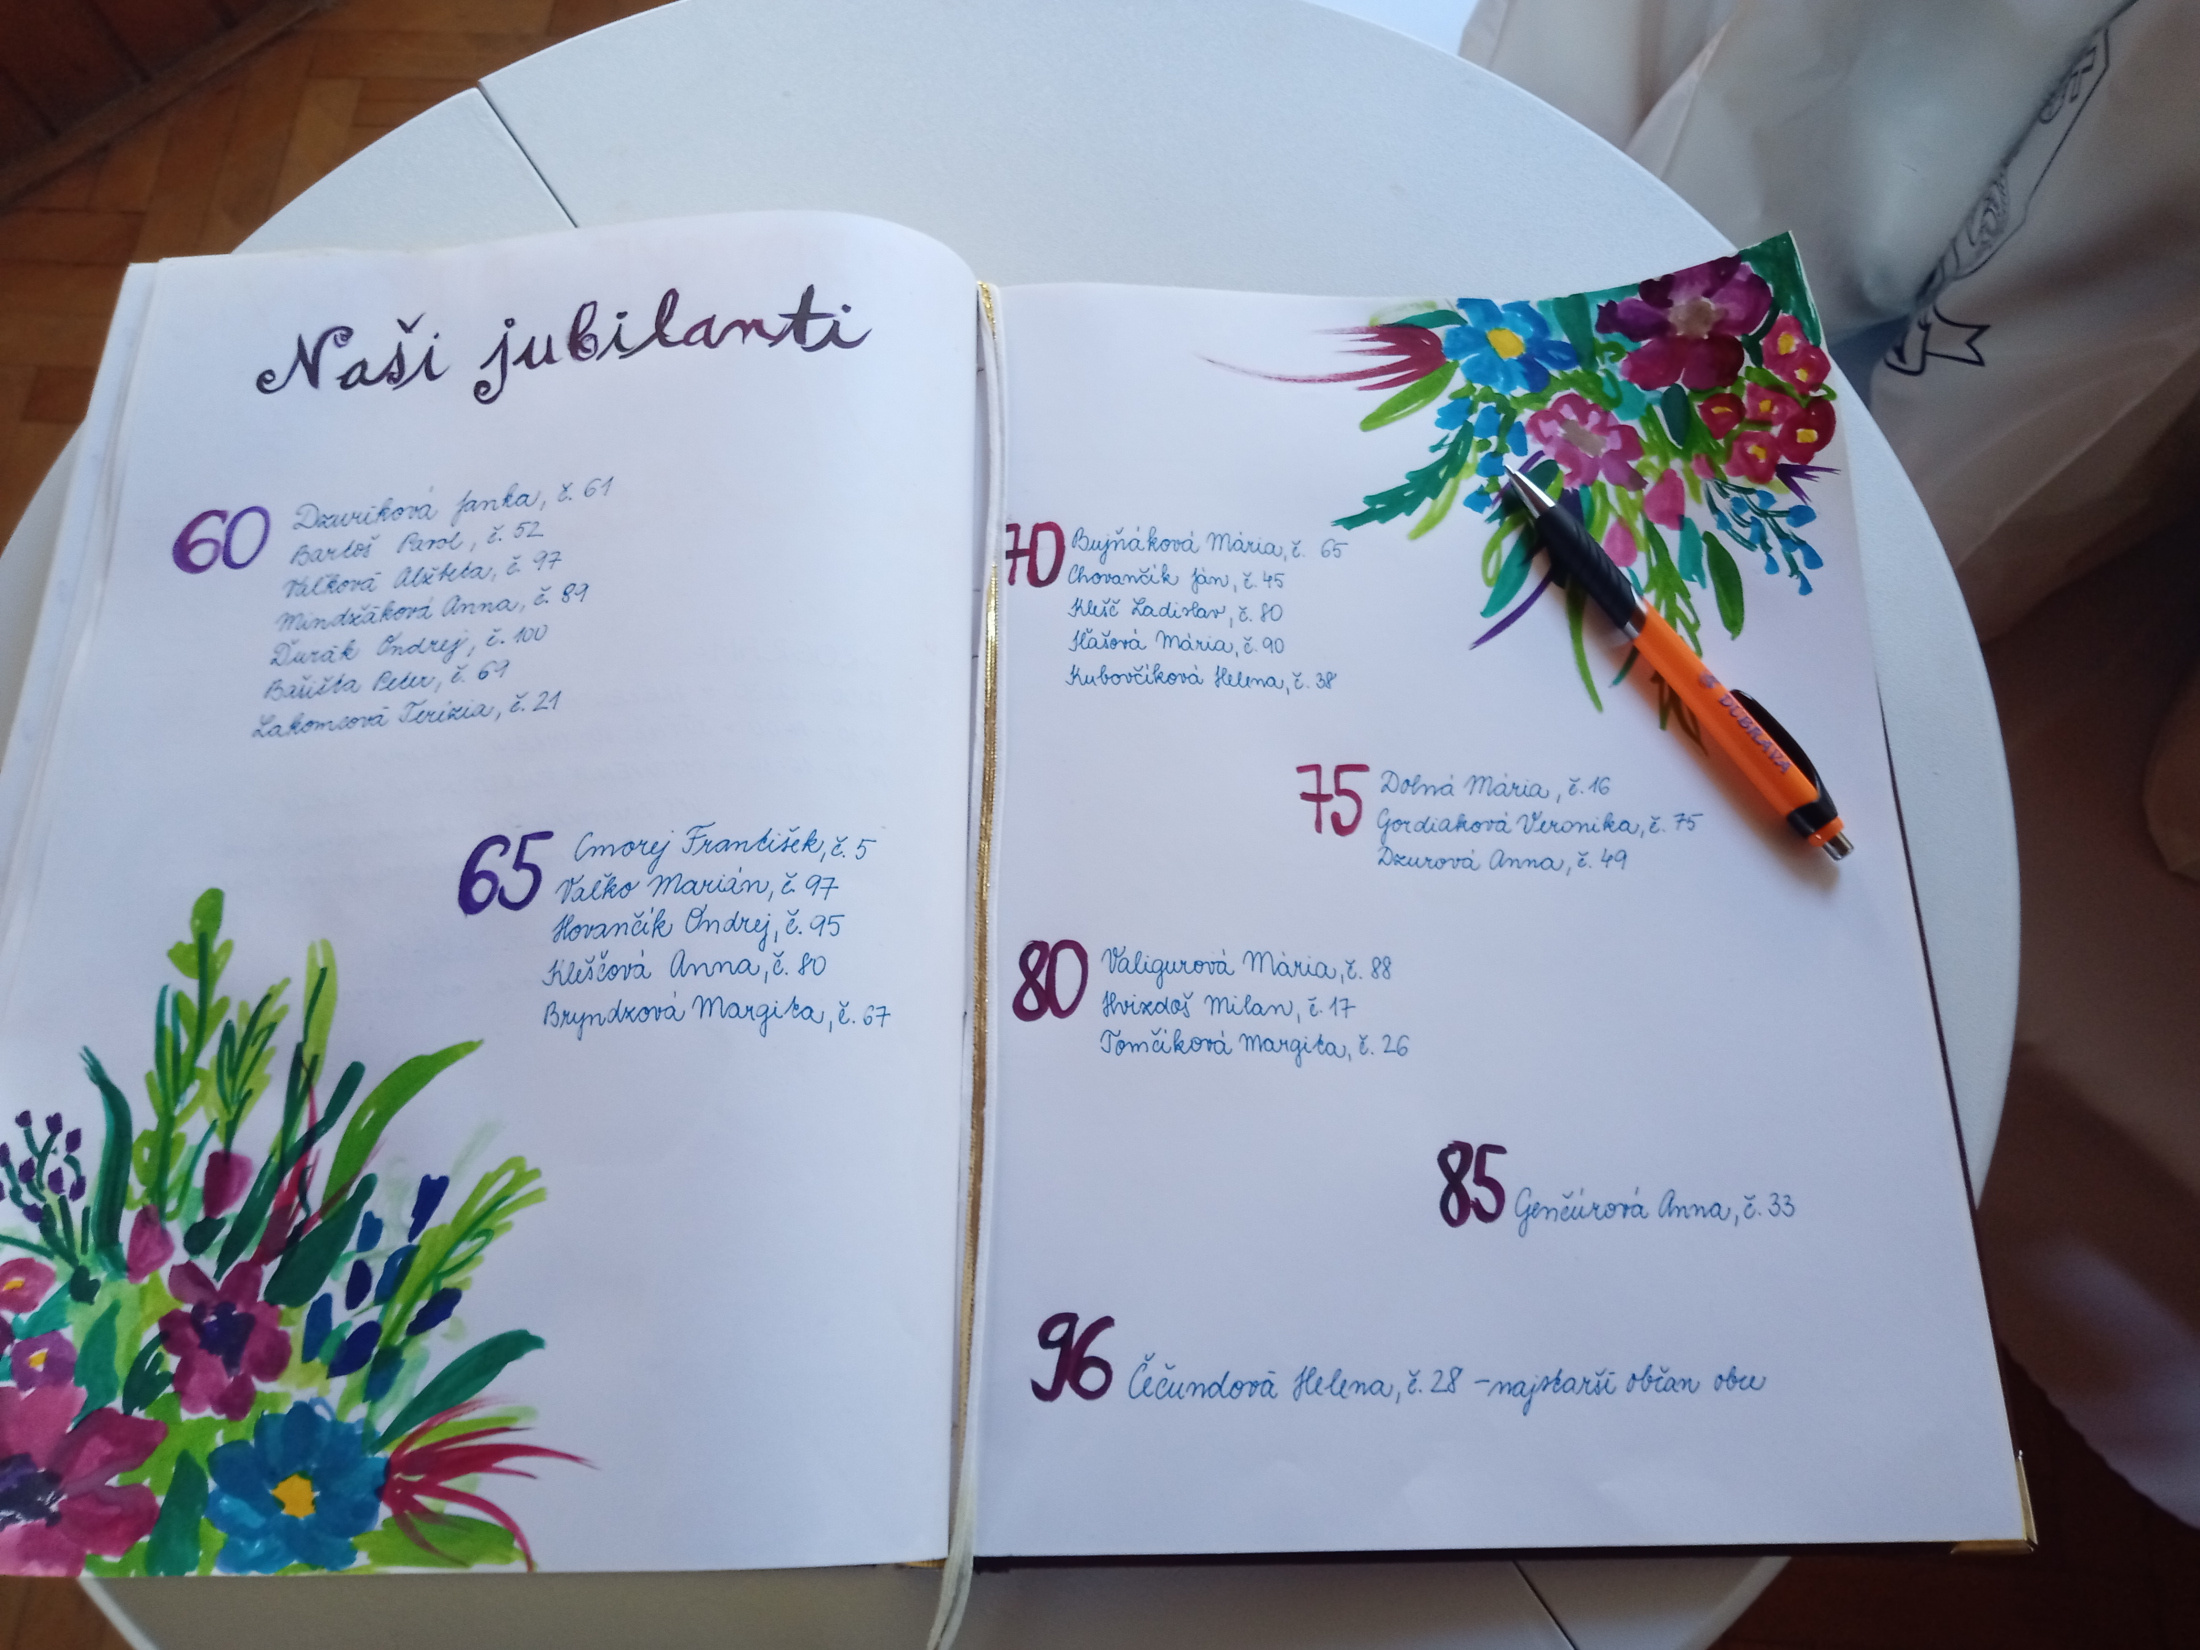 Naši jubilanti
60
Dzuriková Janka, č. 61
Bartoš Pavol, č. 52
Vaľková Alžbeta, č. 97
Mindžáková Anna, č. 89
Ďurák Ondrej, č. 100
Bašista Peter, č. 69
Lakomcová Terézia, č. 21
65
Cmorej František, č. 5
Vaľko Marián, č. 97
Hovančík Ondrej, č. 95
Kleščová Anna, č. 80
Bryndzová Margita, č. 67
70
Bujňáková Mária, č. 65
Chovančík Ján, č. 45
Klešč Ladislav, č. 80
Hašová Mária, č. 90
Kubovčíková Helena, č. 38
75
Dolná Mária, č. 16
Gordiaková Veronika, č. 75
Dzurová Anna, č. 49
80
Valigurová Mária, č. 88
Hvizdoš Milan, č. 17
Tomčíková Margita, č. 26
85
Genčúrová Anna, č. 33
96
Čečundová Helena, č. 28 - najstarší občan obce
DÚBRAVA